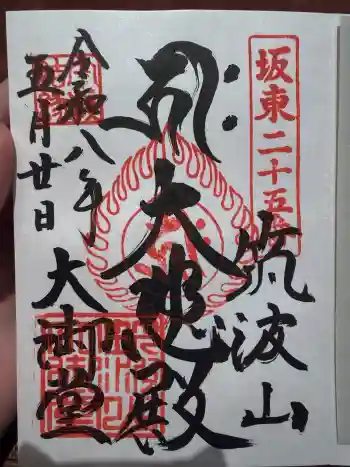 坂東二十五番
筑波山
大悲殿
大御堂
令和八年
五月廿日